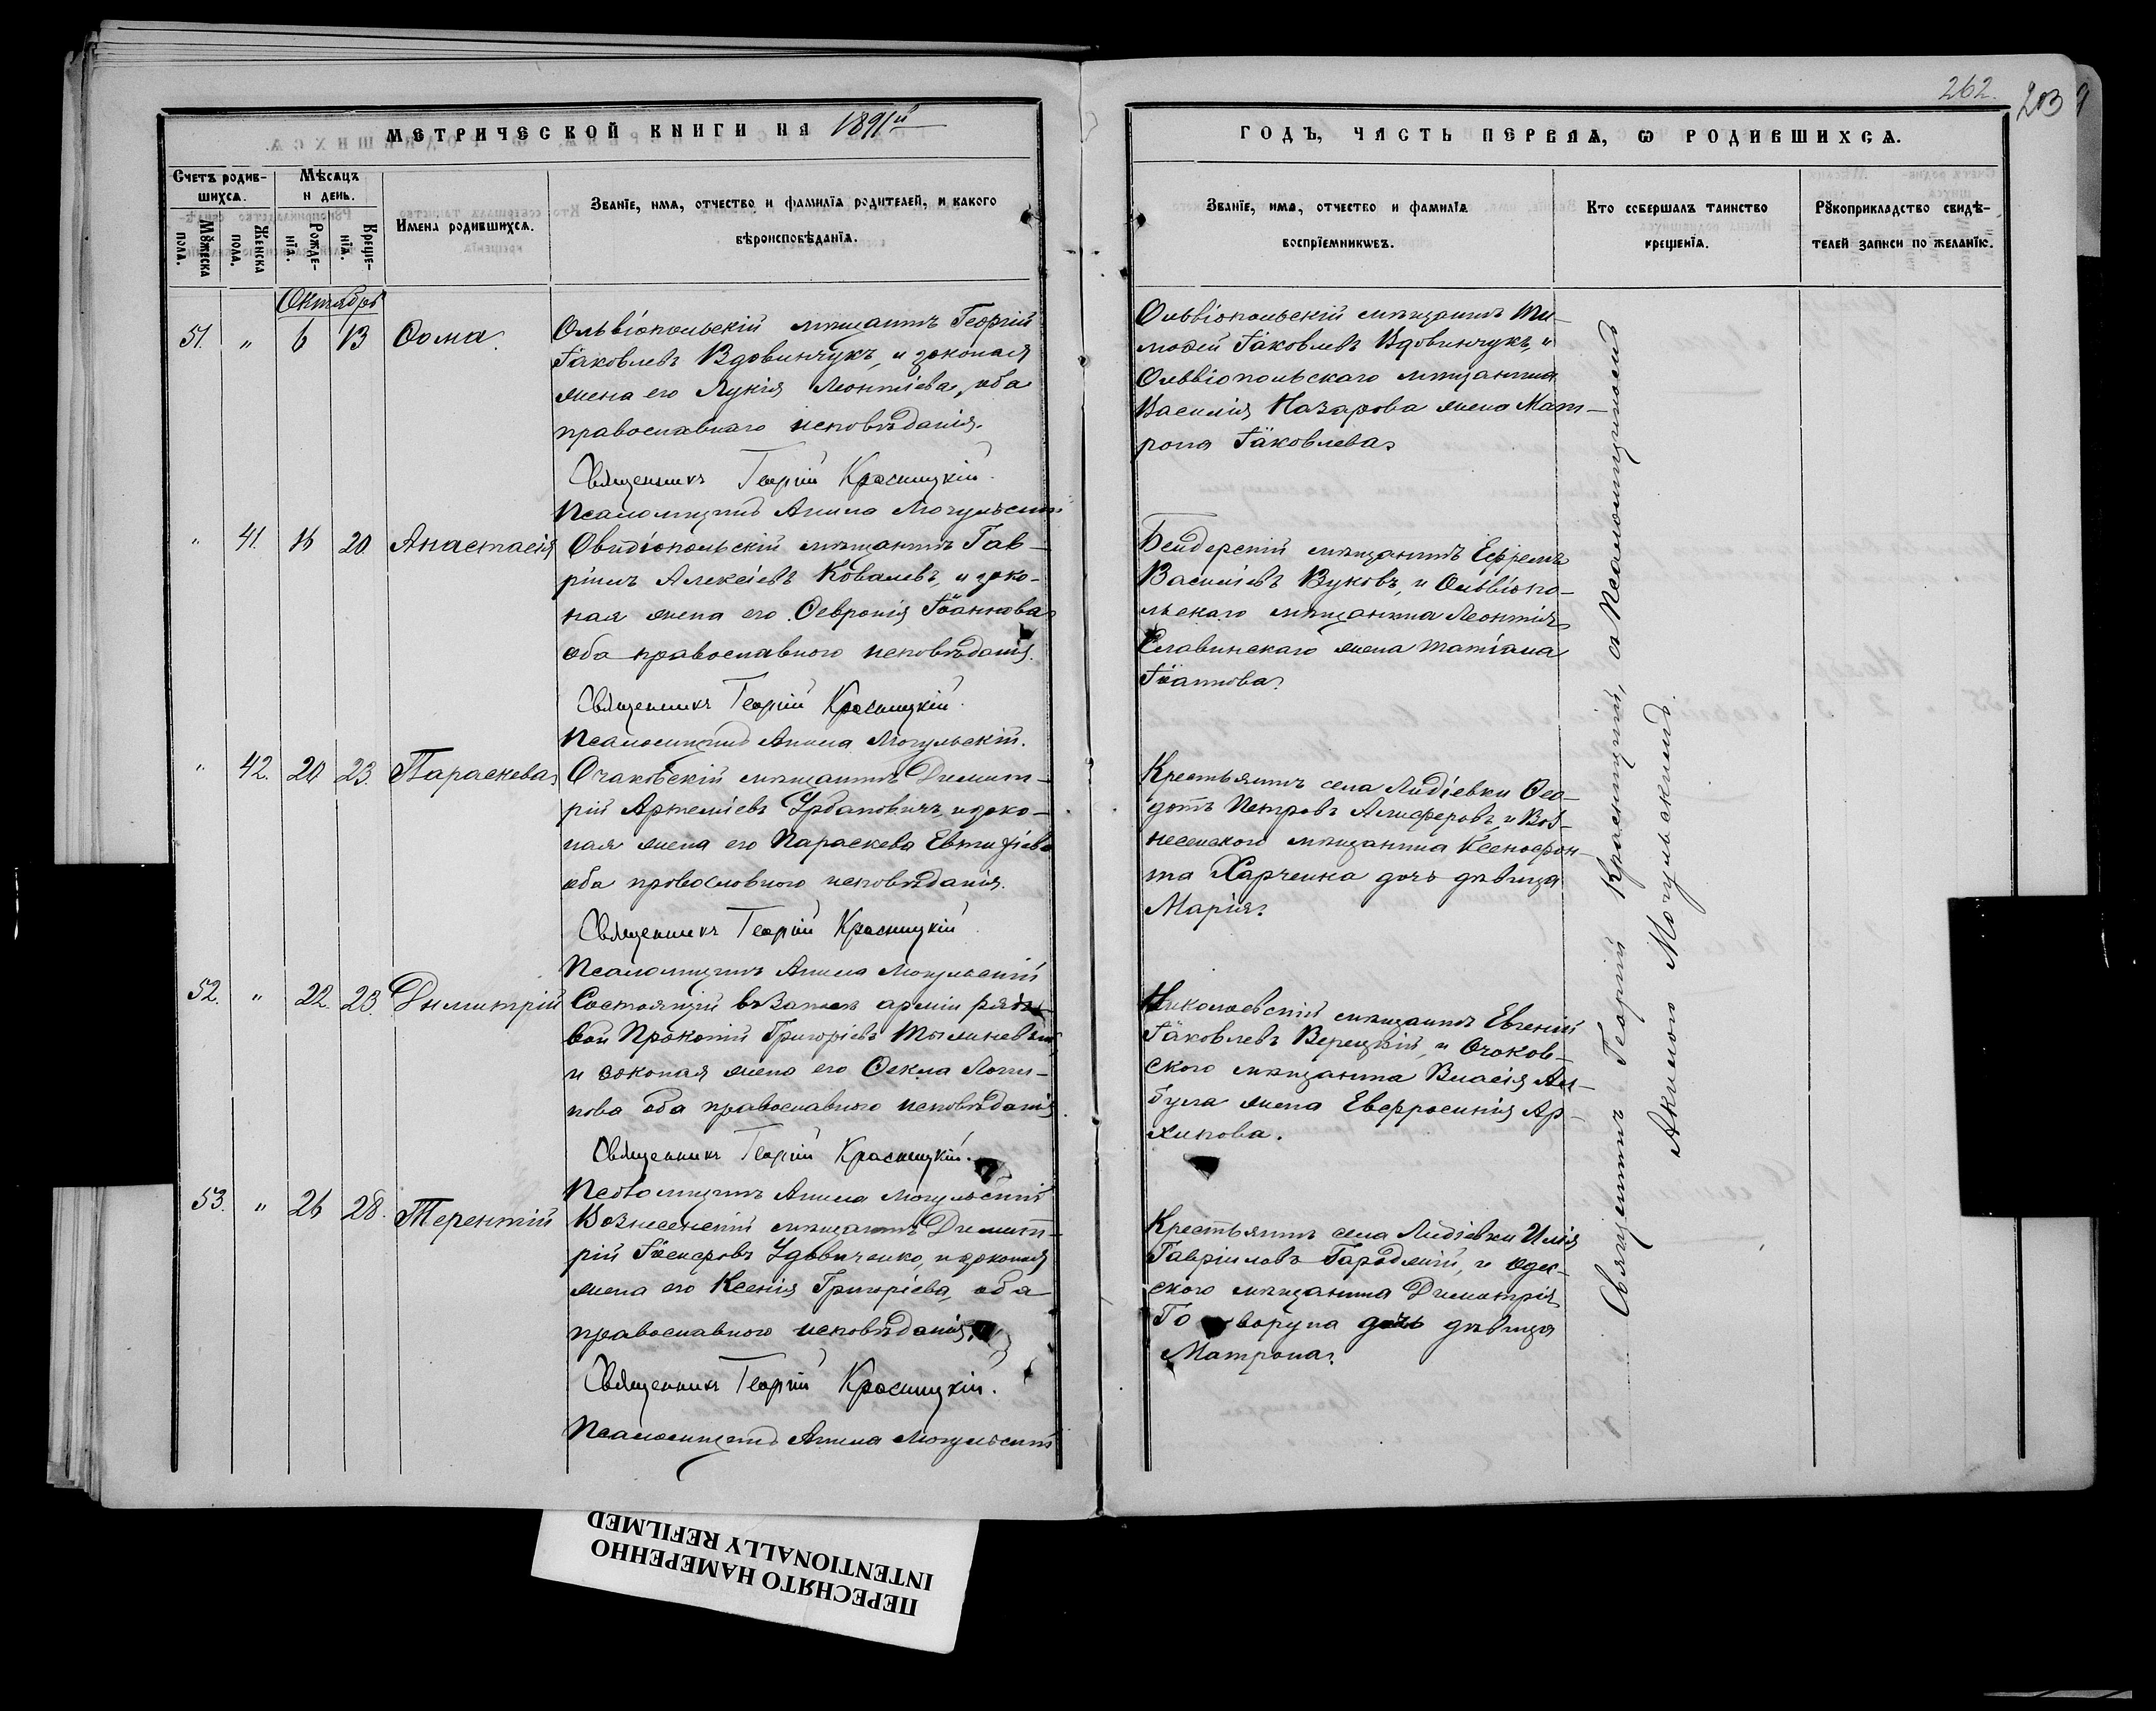 262.
203
МЕТРИЧЕСКОЙ КНИГИ НА 1891й
ГОДЪ, ЧАСТЬ ПЕРВАѦ, Ѡ РОДИВШИХСѦ.
Счетъ родив-
шихсѧ.
Мѣсѧцъ
и день.
Мꙋжеска
пола.
Женска
пола.
Рожде-
нїѧ.
Креще-
нїѧ.
Имена родившихсѧ.
Званїе, имѧ, отчество и фамилїѧ родителей, и какого
вѣроисповѣданїѧ.
Званїе, имѧ, отчество и фамилїѧ
воспрїемникѡвъ.
Кто совершалъ таинство
крещенїѧ.
Рꙋкоприкладство свидѣ-
телей записи по желанїю.
Октябрь
51. " 6 13 Ѳома.
Ольвіопольскій мѣщанинъ Георгій
Іаковлевъ Вдовинчукъ, и законая
жена его Лукія Леонтіева, оба
православнаго исповѣданія.
Священникъ Георгій Красницкій.
Псаломщикъ Акила Могульскій
Ольвіопольскій мѣщанинъ Ти-
моѳей Іаковлевъ Вдовинчукъ, и
Ольвіопольскаго мѣщанина
Василія Назарова жена Мат-
рона Іаковлева.
" 41. 16 20 Анастасія
Овидіопольскій мѣщанинъ Гав-
ріилъ Алексіевъ Ковалевъ, и зако-
ная жена его Ѳевронія Іоаннова
оба православного исповѣданія.
Священникъ Георгій Красницкій.
Псаломщикъ Акила Могульскій.
Бендерскій мѣщанинъ Ефремъ
Василіевъ Вуковъ, и Ольвіопо-
льскаго мѣщанина Леонтія
Славинскаго жена Татіана
Іоаннова.
" 42. 20 23. Параскева
Очаковскій мѣщанинъ Димит-
рій Артеміевъ Урбановичъ, и зако-
ная жена его Параскева Евтихіева
оба православного исповѣданія.
Священникъ Георгій Красницкій
Псаломщикъ Акила Могульскій
Крестьянинъ села Лидіевки Ѳео-
дотъ Петровъ Алиферовъ, и Воз-
несенского мѣщанина Ксенофон-
та Харченка дочь дѣвица
Марія.
52. " 22. 23. Димитрій
Состоящій въ Запасѣ арміи рядо-
вой Прокопій Григоріевъ
и законая жена его Ѳекла Логги-
нова оба православного исповѣданія.
Священникъ Георгій Красницкій.
Псаломщикъ Акила Могульскій
Николаевскій мѣщанинъ Евгеній
Іаковлевъ Верецкій, и Очаков-
ского мѣщанина Власія
жена Евфросинія Ар-
хипова.
53. " 26 28. Терентій
Вознесенскій мѣщанинъ Димит-
рій Іосифовъ Удовиченко, и законая
жена его Ксенія Григоріева, оба
православного исповѣданія.
Священникъ Георгій Красницкій.
Псаломщикъ Акила Могульскій
Крестьянинъ села Лидіевки Илія
Гавріиловъ и Одес-
ского мѣщанина Димитрія
Говоруна дочь дѣвица
Матрона.
Священникъ Георгій Красницкій, съ Псаломщикомъ
Акилою Могульскимъ.
ПЕРЕСНЯТО НАМЕРЕННО
INTENTIONALLY REFILMED